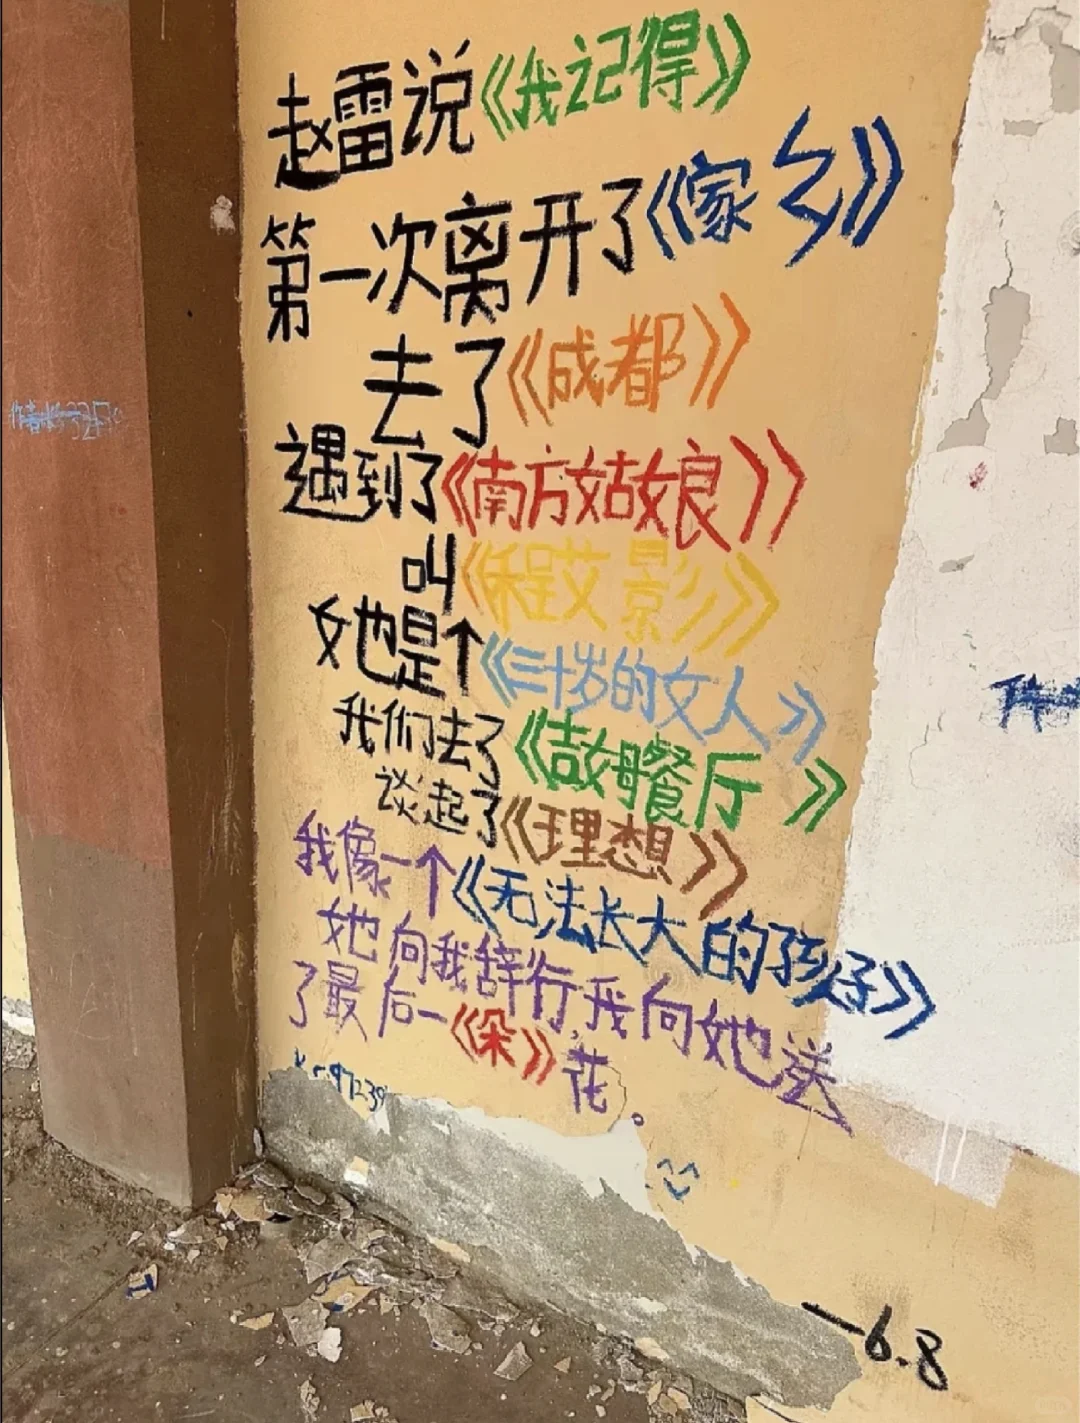 赵雷说《我记得》
第一次离开了《家乡》
去了《成都》
遇到了《南方姑娘》
叫《程艾影》
她是个《三十岁的女人》
我们去了《鼓楼餐厅》
谈起了《理想》
我像一个《无法长大的孩子》
她向我辞行,我向她送
了最后一《朵》花。
一6.8